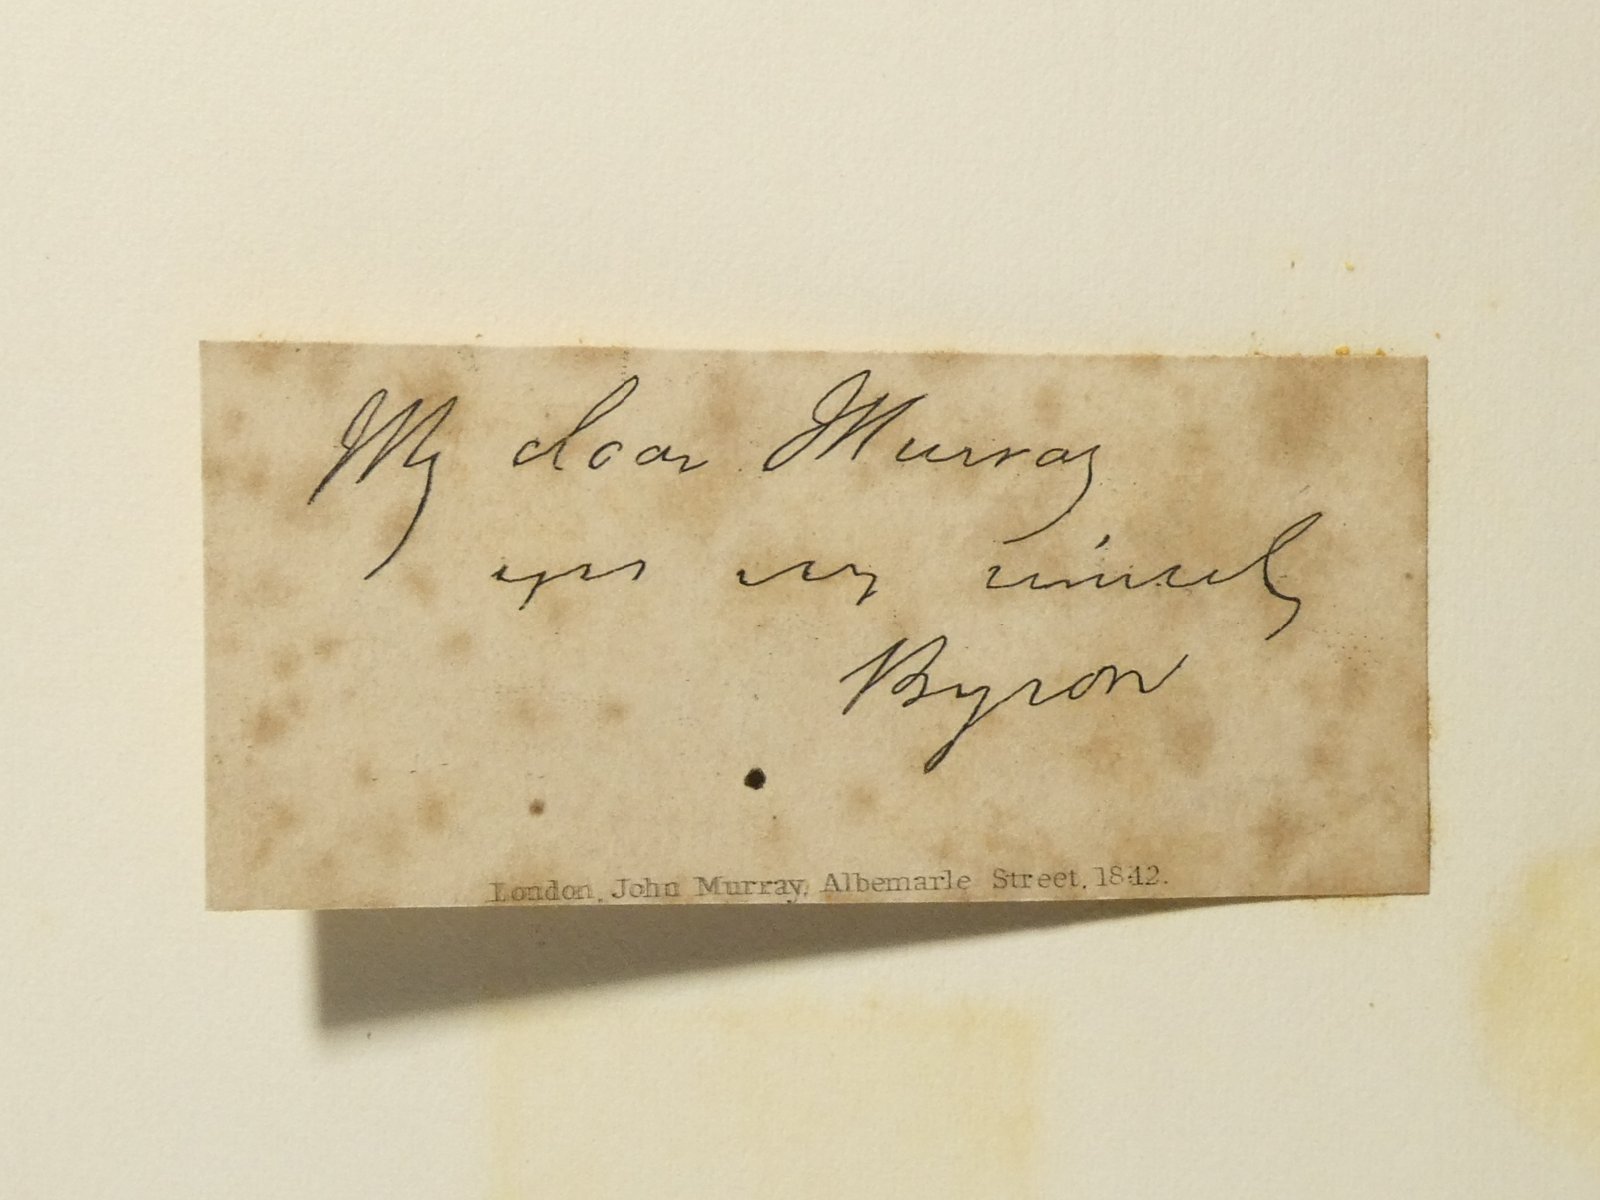 My dear Murray
yrs very sincerely
Byron
London, John Murray, Albemarle Street, 1842.